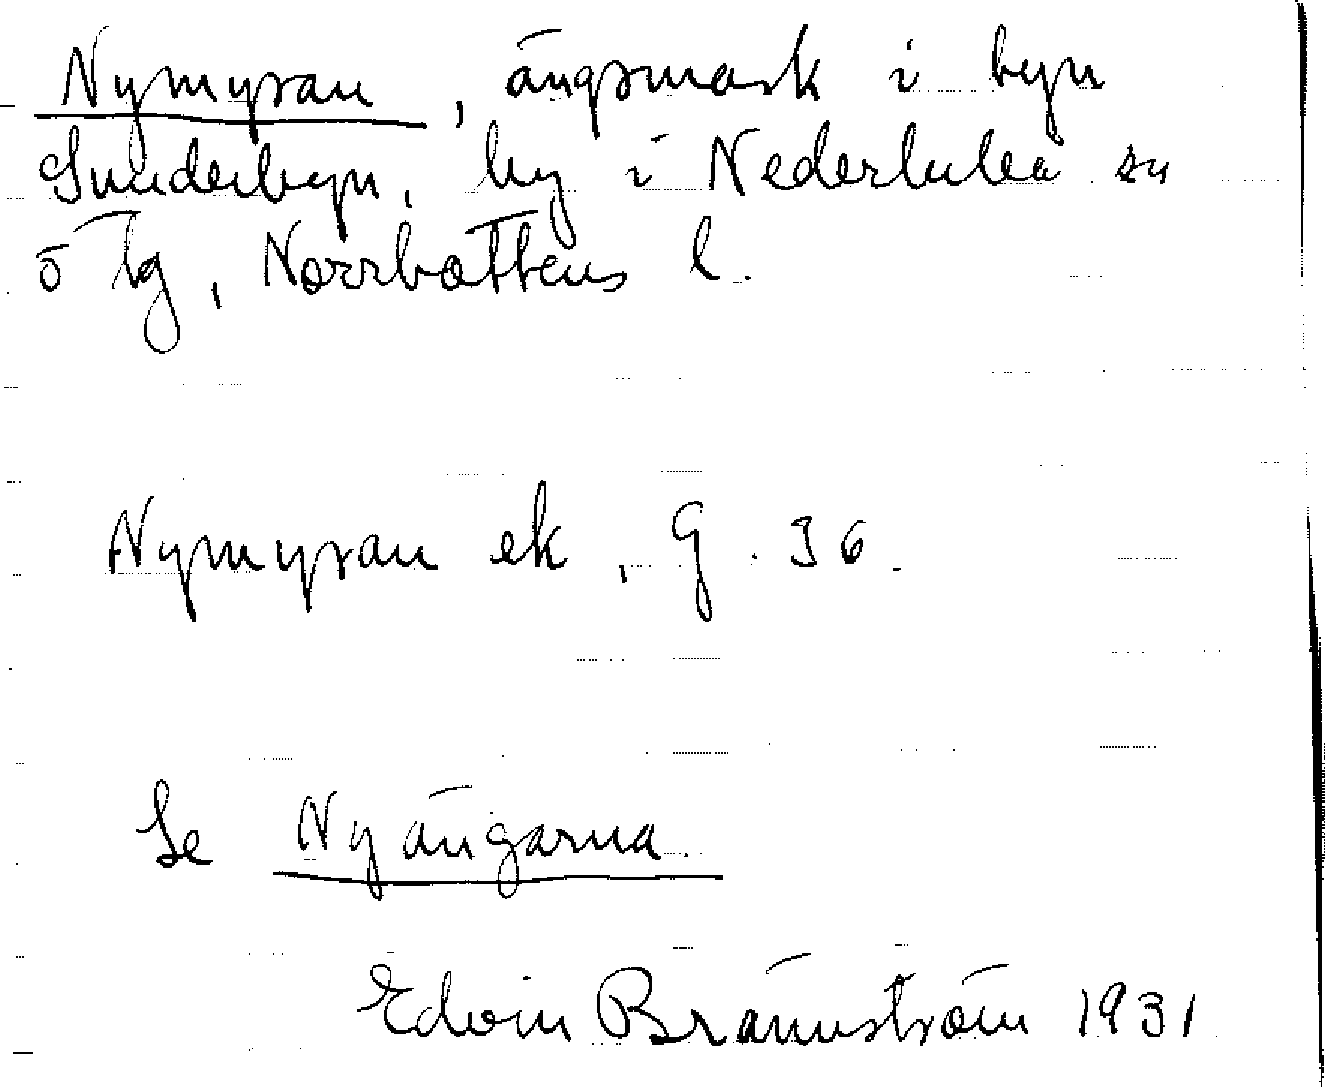 Nymyran, ängsmark i byn
Sunderbyn, by i Nederluleå sn
ö tg, Norrbottens l.
Nymyran ek, G. 36.
Se Nyängarna
Edvin Brännström 1931